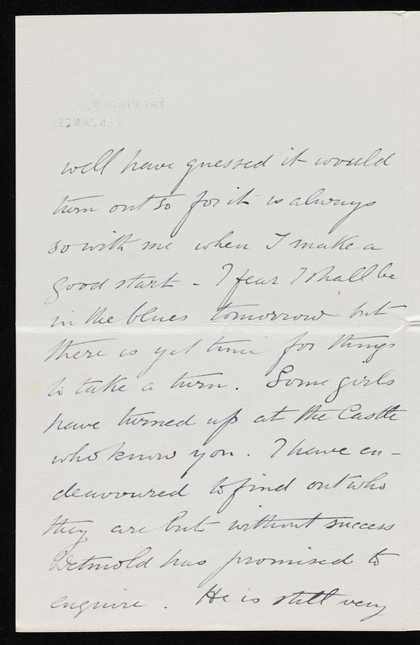 well have guessed it would
turn out so for it is always
so with me when I make a
good start - I fear I shall be
in the blues tomorrow but
there is yet time for things
to take a turn. Some girls
have turned up at the Castle
who know you. I have en-
deavoured to find out who
they are but without success
Detmold has promised to
enquire. He is still very